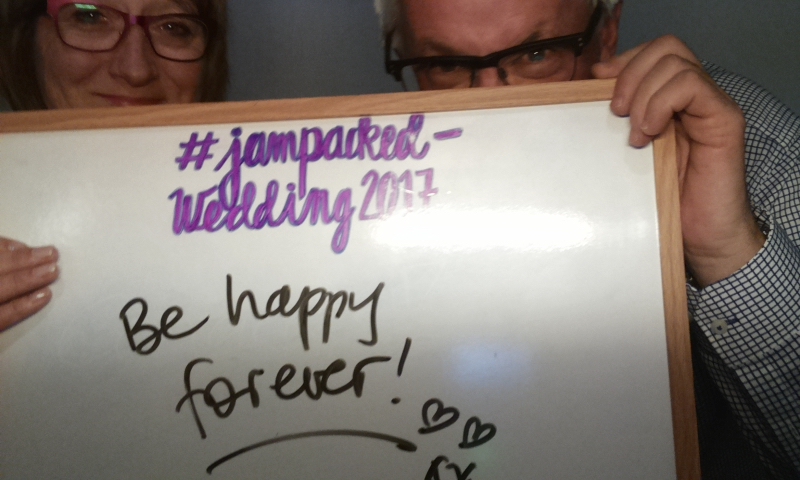 #jampacked-
Wedding2017
Be happy
forever!